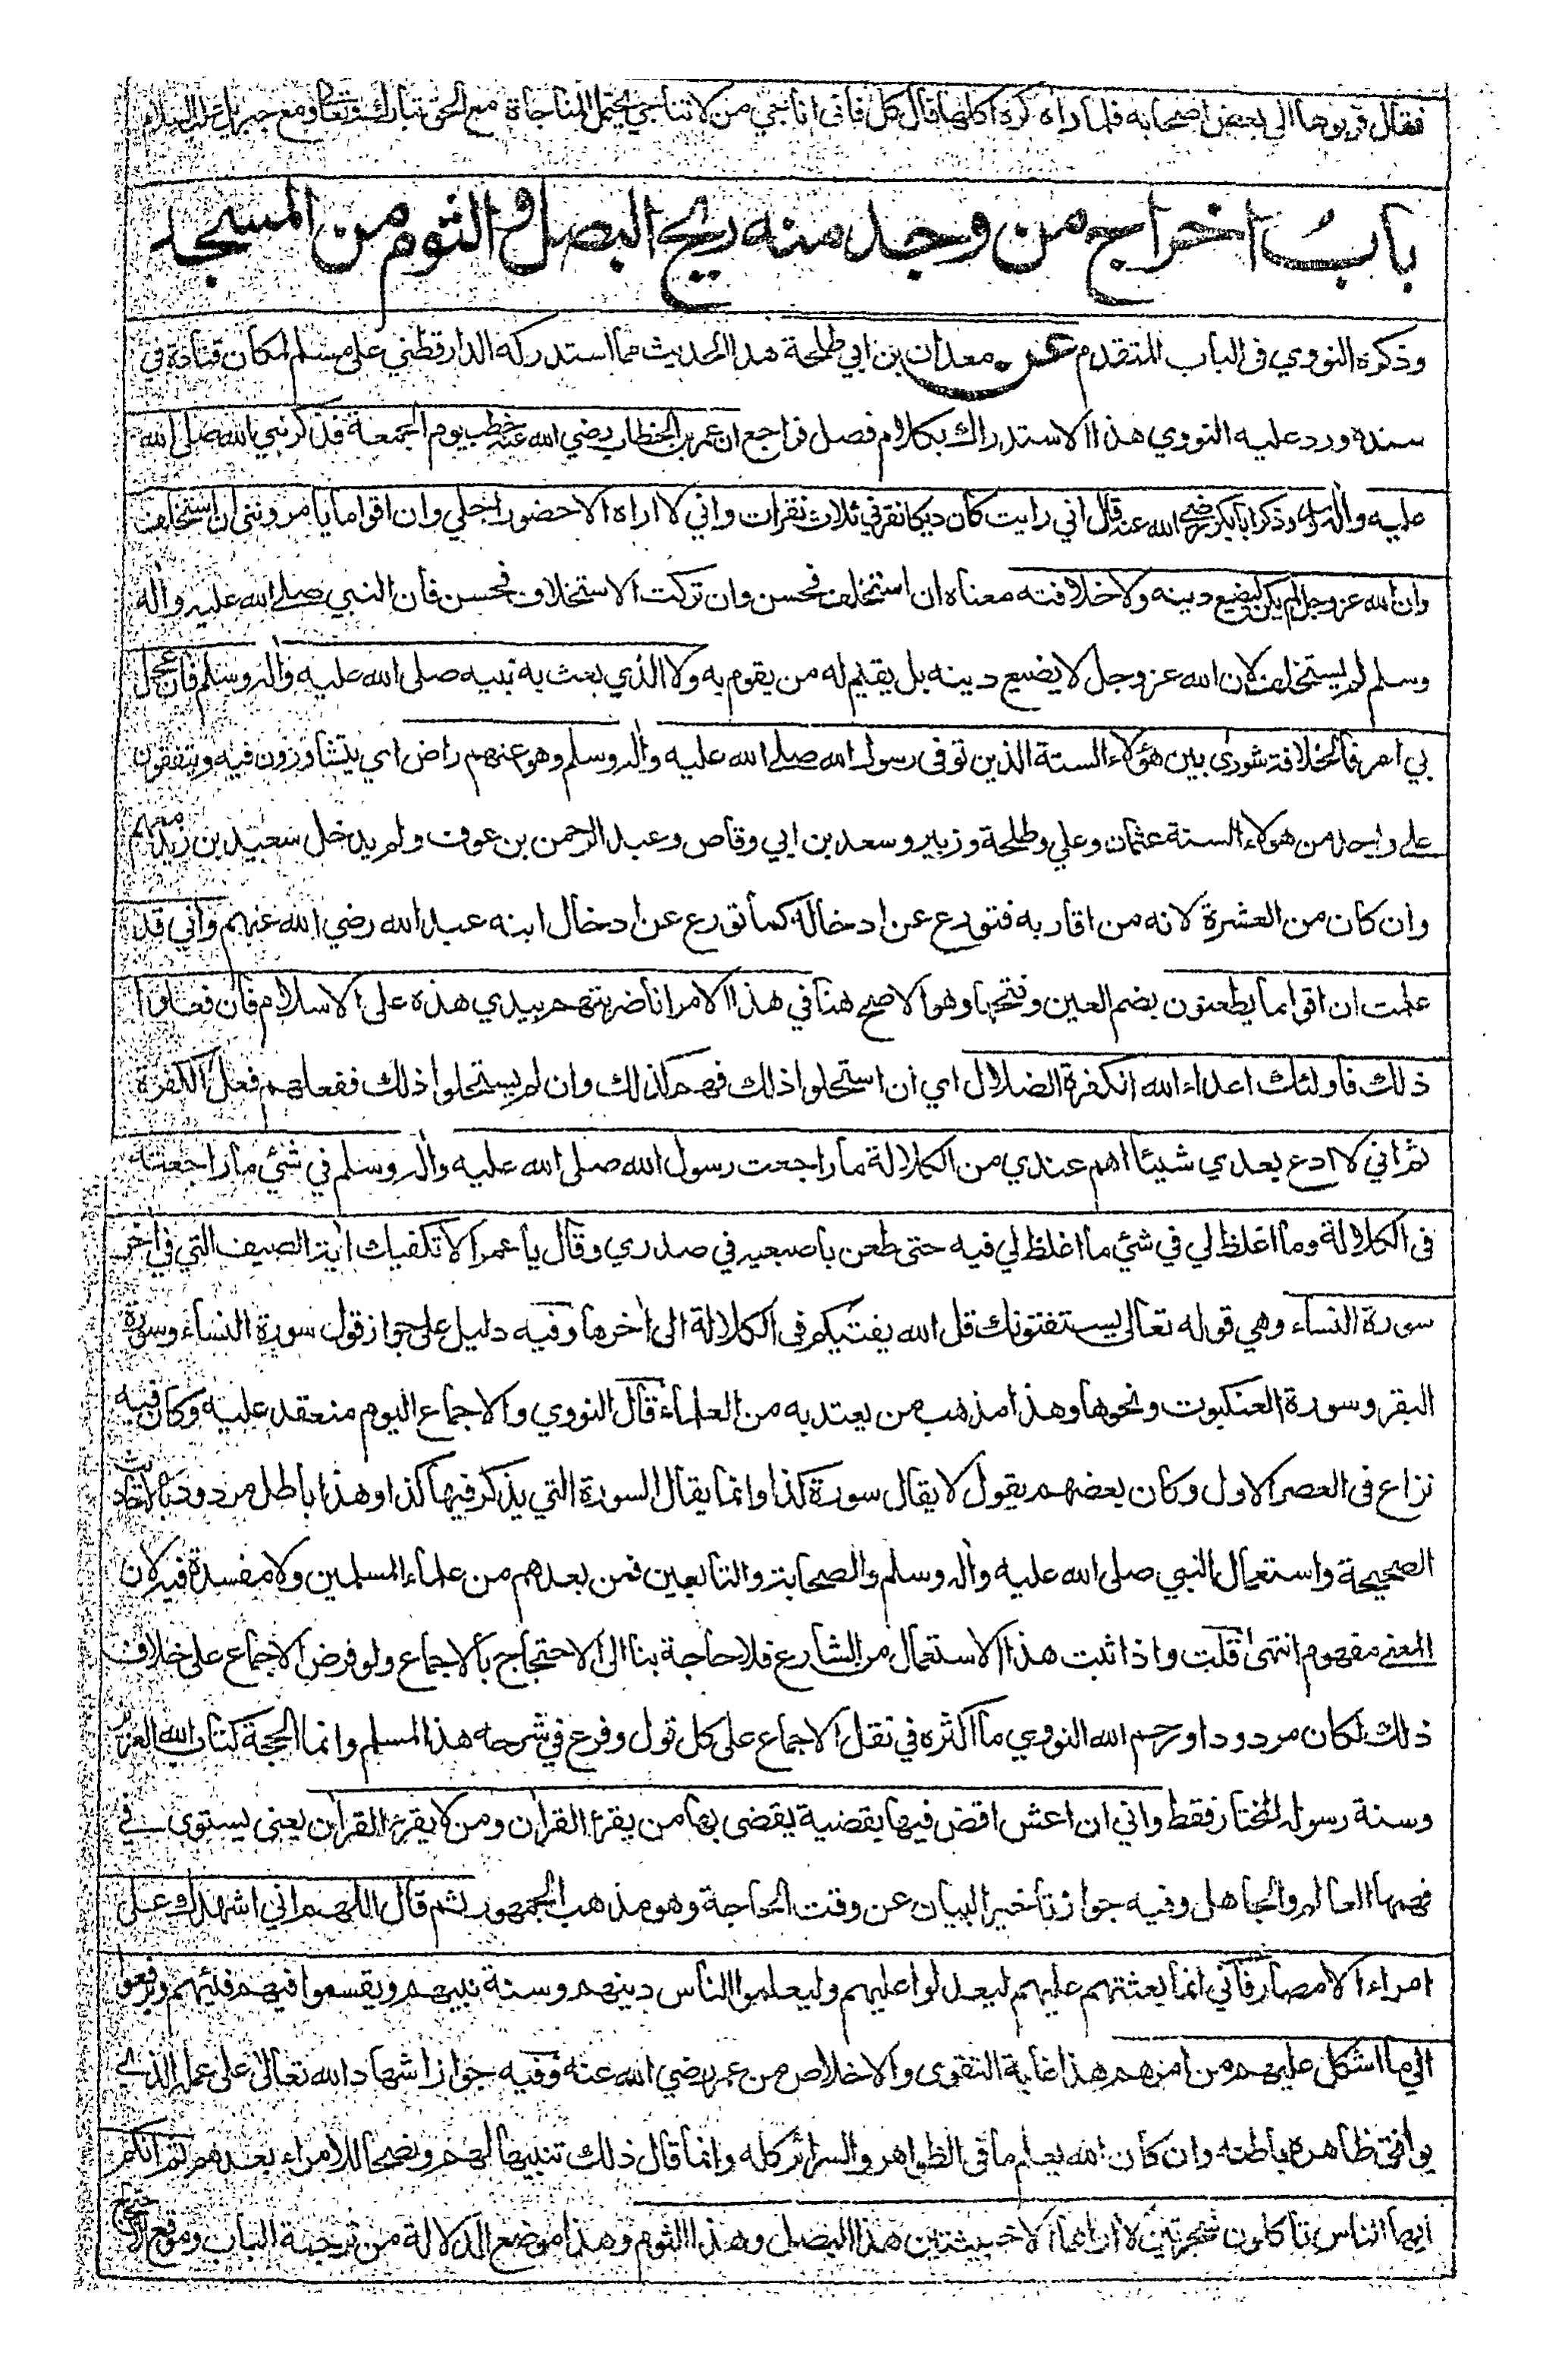 فقال قربوها الى بعض اصحابه فلما راه كره اكلها قال كل فاني اناجي من لا تناجي يحتمل المناجاة مع الحق تبارك وتعالى ومع جبريل عليه السلام
باب اخراج من وجد منه ريح البصل والثوم من المسجد
وذكره النووي في الباب المتقدم عن معدان بن ابي طلحة هذا الحديث مما استدركه الدارقطني على مسلم لمكان قتادة في
سنده ورد عليه النووي هذا الاستدراك بكلام فصل فراجع ان عمر بن الخطاب رضي الله عنه خطب يوم الجمعة فذكر نبي الله صلى الله
عليه واله وسلم وذكر ابا بكر رضي الله عنه قال اني رايت كان ديكا نقرني ثلاث نقرات واني لا اراه الا حضور اجلي وان اقواما يامرونني ان استخلف
وان الله عز وجل لم يكن ليضيع دينه ولا خلافته معناه ان استخلف فحسن وان تركت الاستخلاف فحسن فان النبي صلى الله عليه واله
وسلم لم يستخلف لان الله عز وجل لا يضيع دينه بل يقيم له من يقوم به ولا الذي بعث به نبيه صلى الله عليه واله وسلم فان عجل
بي امر فالخلافة شورى بين هؤلاء الستة الذين توفى رسول الله صلى الله عليه واله وسلم وهو عنهم راض اي يتشاورون فيه ويتفقون
على واحد من هولاء الستة عثمان وعلي وطلحة وزبير وسعد بن ابي وقاص وعبد الرحمن بن عوف ولم يدخل سعيد بن زيد معهم
وان كان من العشرة لانه من اقاربه فتورع عن ادخاله كما تورع عن ادخال ابنه عبد الله رضي الله عنهم واني قد
علمت ان اقواما يطعنون بضم العين وفتحها وهو الاصح هنا في هذا الامر انا ضربتهم بيدي هذه على الاسلام فان فعلوا
ذلك فاولئك اعداء الله الكفرة الضلال اي ان استحلوا ذلك فهم كذلك وان لم يستحلوا ذلك ففعلهم فعل الكفرة
ثم اني لا ادع بعدي شيئا اهم عندي من الكلالة ما راجعت رسول الله صلى الله عليه واله وسلم في شئ ما راجعته
في الكلالة وما اغلظ لي في شئ ما اغلظ لي فيه حتى طعن باصبعه في صدري وقال يا عمر الا تكفيك اية الصيف التي في اخر
سورة النساء وهي قوله تعالى يستفتونك قل الله يفتيكم في الكلالة الى اخرها وفيه دليل على جواز قول سورة النساء وسورة
البقر وسورة العنكبوت ونحوها وهذا مذهب من يعتد به من العلماء قال النووي والاجماع اليوم منعقد عليه وكان فيه
نزاع في العصر الاول وكان بعضهم يقول لا يقال سورة كذا وانما يقال السورة التي يذكر فيها كذا وهذا باطل مردود بالاحاديث
الصحيحة واستعمال النبي صلى الله عليه واله وسلم والصحابة والتابعين فمن بعدهم من علماء المسلمين ولا مفسدة فيه لان
المعنى مفهوم انتهى قلت واذا ثبت هذا الاستعمال من الشارع فلا حاجة بنا الى الاحتجاج بالاجماع ولو فرض الاجماع على خلاف
ذلك لكان مردودا ورحم الله النووي ما اكثره في نقل الاجماع على كل قول وفرع في شرحه هذا المسلم وانما الحجة كتاب الله العزيز
وسنة رسوله المختار فقط واني ان اعش اقض فيها بقضية يقضى بها من يقرء القران ومن لا يقرء القران يعني يستوى في
فهمها العالم والجاهل وفيه جواز تاخير البيان عن وقت الحاجة وهو مذهب الجمهور ثم قال اللهم اني اشهدك على
امراء الامصار فاني انما بعثتهم عليهم ليعدلوا عليهم وليعلموا الناس دينهم وسنة نبيهم ويقسموا فيهم فيئهم ويرفعوا
الي ما اشكل عليهم من امرهم هذا غاية التقوى والاخلاص من عمر رضي الله عنه وفيه جواز اشهاد الله تعالى على عمله الذي
يوافق ظاهره باطنه وان كان الله يعلم ما في الظواهر والسرائر كله وانما قال ذلك تنبيها لهم ونصحا للامراء بعدهم ثم انكم
ايها الناس تاكلون شجرتين لا اراهما الا خبيثتين هذا البصل وهذا الثوم وهذا موضع الدلالة من ترجمة الباب وموقع الاحتجاج